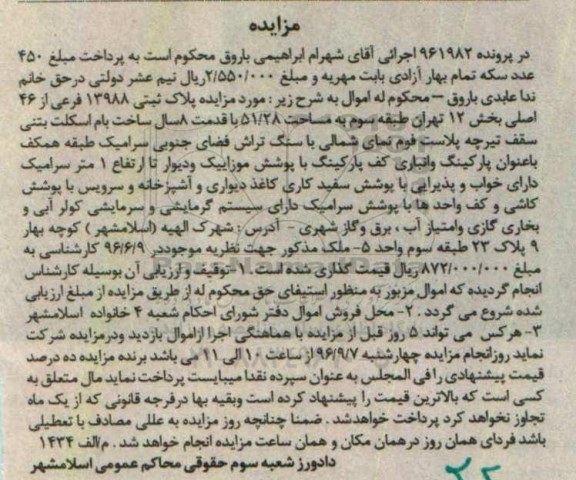 مزایده
در پرونده ۹۶۱۹۸۲ اجرائی آقای شهرام ابراهیمی باروق محکوم است به پرداخت مبلغ ۴۵۰
عدد سکه تمام بهار آزادی بابت مهریه و مبلغ ۲/۵۵۰/۰۰۰ریال نیم عشر دولتی درحق خانم
ندا عابدی باروق – محکوم له اموال به شرح زیر : مورد مزایده پلاک ثبتی ۱۳۹۸۸ فرعی از ۴۶
اصلی بخش ۱۲ تهران طبقه سوم به مساحت ۵۱/۲۸ با قدمت ۸سال ساخت بام اسکلت بتنی
سقف تیرچه پلاست فوم نمای شمالی با سنگ تراش فضای جنوبی سرامیک طبقه همکف
باعنوان پارکینگ وانباری کف پارکینگ با پوشش موزاییک ودیوار تا ارتفاع ۱ متر سرامیک
دارای خواب و پذیرایی با پوشش سفید کاری کاغذ دیواری و آشپزخانه و سرویس با پوشش
کاشی و کف واحد ها با پوشش سرامیک دارای سیستم گرمایشی و سرمایشی کولر آبی و
بخاری گازی وامتیاز آب ، برق وگاز شهری – آدرس : شهرک الهیه (اسلامشهر ) کوچه بهار
۹ پلاک ۲۳ طبقه سوم واحد ۵- ملک مذکور جهت نظریه موجوددر ۹۶/۶/۹ کارشناسی به
مبلغ ۸۷۲/۰۰۰/۰۰۰ ریال قیمت گذاری شده است. ۱-توقیف و ارزیابی آن بوسیله کارشناس
انجام گردیده که اموال مزبور به منظور استیفای حق محکوم له از طریق مزایده از مبلغ ارزیابی
شده شروع می گردد . ۲- محل فروش اموال دفتر شورای احکام شعبه ۴ خانواده اسلامشهر
۳- هرکس می تواند ۵ روز قبل از مزایده با هماهنگی اجرا ازاموال بازدید ودرمزایده شرکت
نماید روزانجام مزایده چهارشنبه ۹۶/۹/۷ از ساعت ۱۰ الی ۱۱ می باشد برنده مزایده ده درصد
قیمت پیشنهادی رافی المجلس به عنوان سپرده نقدا میبایست پرداخت نماید مال متعلق به
کسی است که بالاترین قیمت را پیشنهاد کرده است وبقیه بها درفرجه قانونی که از یک ماه
تجاوز نخواهد کرد پرداخت خواهدشد . ضمنا چنانچه روز مزایده به عللی مصادف با تعطیلی
باشد فردای همان روز درهمان مکان و همان ساعت مزایده انجام خواهد شد . م/الف ۱۴۳۴
دادورز شعبه سوم حقوقی محاکم عمومی اسلامشهر